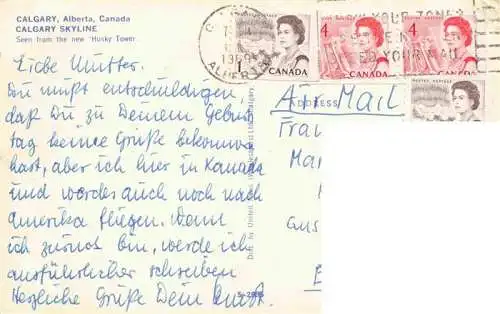 CALGARY, Alberta, Canada
CALGARY SKYLINE
Seen from the new "Husky Tower
Liebe Mutter.
Du mußt entschuldigen
daß Du zu Deinem Geburts
tag keine Grüße bekommen
hast, aber ich bin in Kanada
und werde auch noch nach
Amerika fliegen. Wenn
ich zurück bin, werde ich
ausführlicher schreiben
Herzliche Grüße Dein
CALGARY
196
ALBERTA
POSTES POSTAGE
CANADA
4
CANADA
4
CANADA
YOUR ZONE
YOUR MAIL
POSTES POSTAGE
Air Mail
ADDRESS
Frau
Mar
Gus
5-29